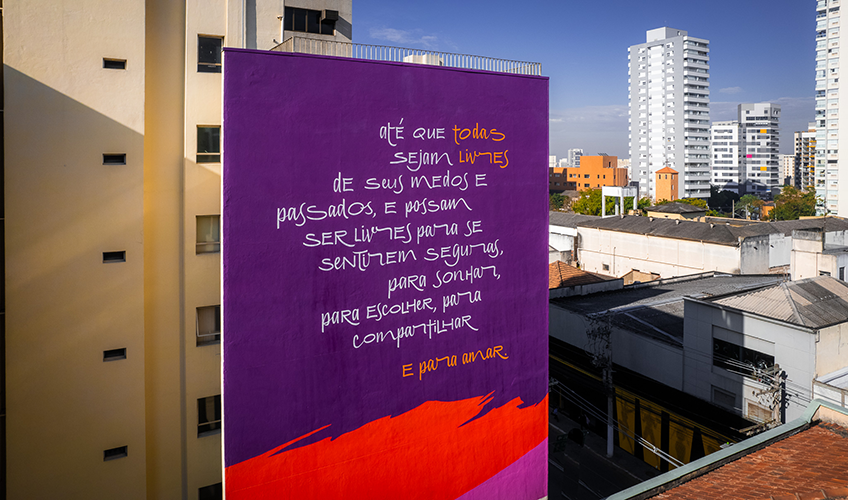 até que todas
sejam livres
de seus medos e
passados, e possam
ser livres para se
sentirem seguras,
para sonhar,
para escolher, para
compartilhar
E para amar.